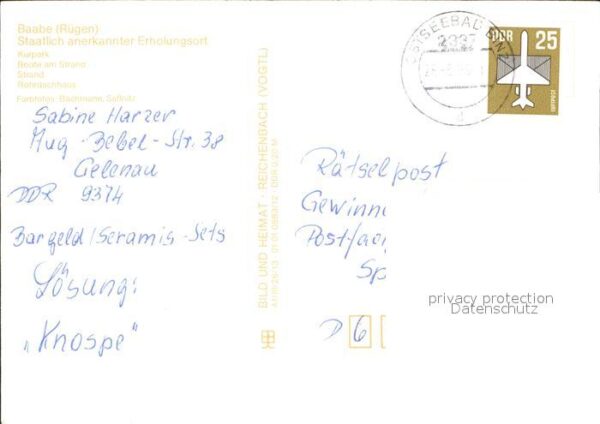 Baabe (Rügen)
Staatlich anerkannter Erholungsort
Kurpark
Boote am Strand
Strand
Rohrdachhaus
Farbfotos: Bachmann, Saßnitz
Sabine Harzer
Aug.-Bebel-Str. 38
Gelenau
DDR 9374
Bargeld/Seramis-Sets
Lösung:
„Knospe"
BILD UND HEIMAT · REICHENBACH (VOGTL)
OSTSEEBAD BINZ
2337
DDR 25
LUFTPOST
Rätselpost
Gewinn
Postfac
Sp
D 6
privacy protection
Datenschutz